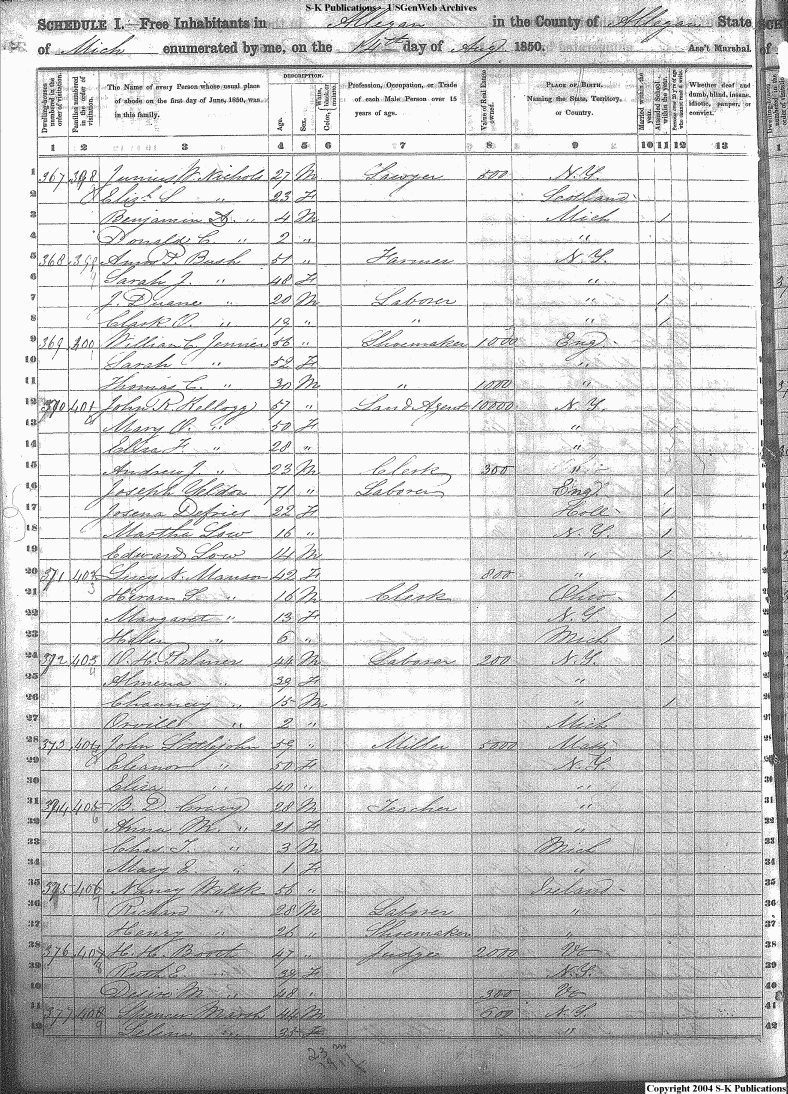 S-K Publications - USGenWeb Archives
SCHEDULE I.—Free Inhabitants in Allegan in the County of Allegan State
of Mich enumerated by me, on the 14th day of Aug 1850. Ass't Marshal
Dwelling-houses numbered in the order of visitation. Families numbered in the order of visitation. The Name of every Person whose usual place of abode on the first day of June, 1850, was in this family. DESCRIPTION. Age. Sex. Color, White, black, or mulatto. Profession, Occupation, or Trade of each Male Person over 15 years of age. Value of Real Estate owned. PLACE OF BIRTH, Naming the State, Territory, or Country. Married within the year. Attended School within the year. Persons over 20 y'rs of age who cannot read & write. Whether deaf and dumb, blind, insane, idiotic, pauper, or convict.
1 2 3 4 5 6 7 8 9 10 11 12 13
1 367 398 Junius W. Nichols 27 M Sawyer 500 N.Y.
2 Eliz. S " 23 F Scotland
3 Benjamin D. " 4 M Mich 1
4 Donald C. " 2 " "
5 368 399 T. Bush 51 " Farmer N.Y.
6 Sarah J. " 48 F "
7 J. Duane " 20 M Laborer " 1
8 Clark O. " 19 " " " 1
9 369 400 William C. Jenner 56 " Shoemaker 1000 Eng
10 Sarah " 52 F "
11 Thomas C. " 30 M " 1000 "
12 370 401 John R. Kellogg 57 " Land Agent 10000 N.Y.
13 Mary O. " 50 F "
14 F. " 28 " "
15 Andrew J. " 23 M Clerk 300 "
16 Joseph 71 " Laborer Eng 1
17 Josena Defries 22 F Holl 1
18 Martha Low 16 " N.Y. 1
19 Edward Low 14 M " 1
20 371 402 Lucy A. Manson 42 F 800 "
21 Hiram S. " 16 M Clerk Ohio 1
22 Margaret " 13 F N.Y. 1
23 Helen " 6 " Mich 1
24 372 403 H. Palmer 44 M Laborer 200 N.Y.
25 Almena " 39 F "
26 Chauncey " 15 M " 1
27 Orville " 2 " Mich
28 373 404 John Littlejohn 59 " Miller 5000 Mass
29 Eleanor " 50 F N.Y.
30 Eliza " 40 " "
31 374 405 B. D. 28 M Teacher "
32 Anna M. " 21 F "
33 Chas T. " 3 M Mich
34 Mary E. " 1 F "
35 375 406 Nancy Walsh 56 " Ireland
36 Richard " 28 M Laborer "
37 Henry " 26 " Shoemaker "
38 376 407 H. H. Booth 47 " Judge 2000 Vt
39 Ruth E. " 39 F N.Y.
40 M. " 48 " 300 Vt
41 377 408 Spencer Marsh 44 M 600 N.Y.
42 " 35 F "
Copyright 2004 S-K Publications